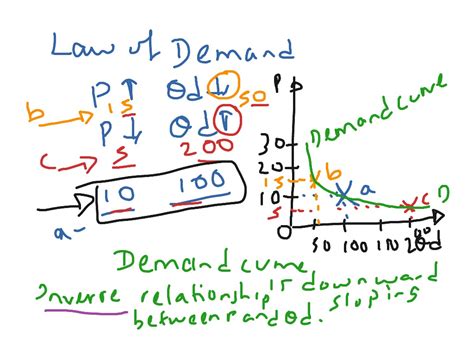 Law of Demand
P↑ Qd↓
b 15 50
P↓ Qd↑
c 5 200
a- 10 100
P
Demand curve
30
20
15 b
10 a
5 c D
0 50 100 150 200 Qd
Demand curve
is downward
sloping
Inverse relationship
between P and Qd.